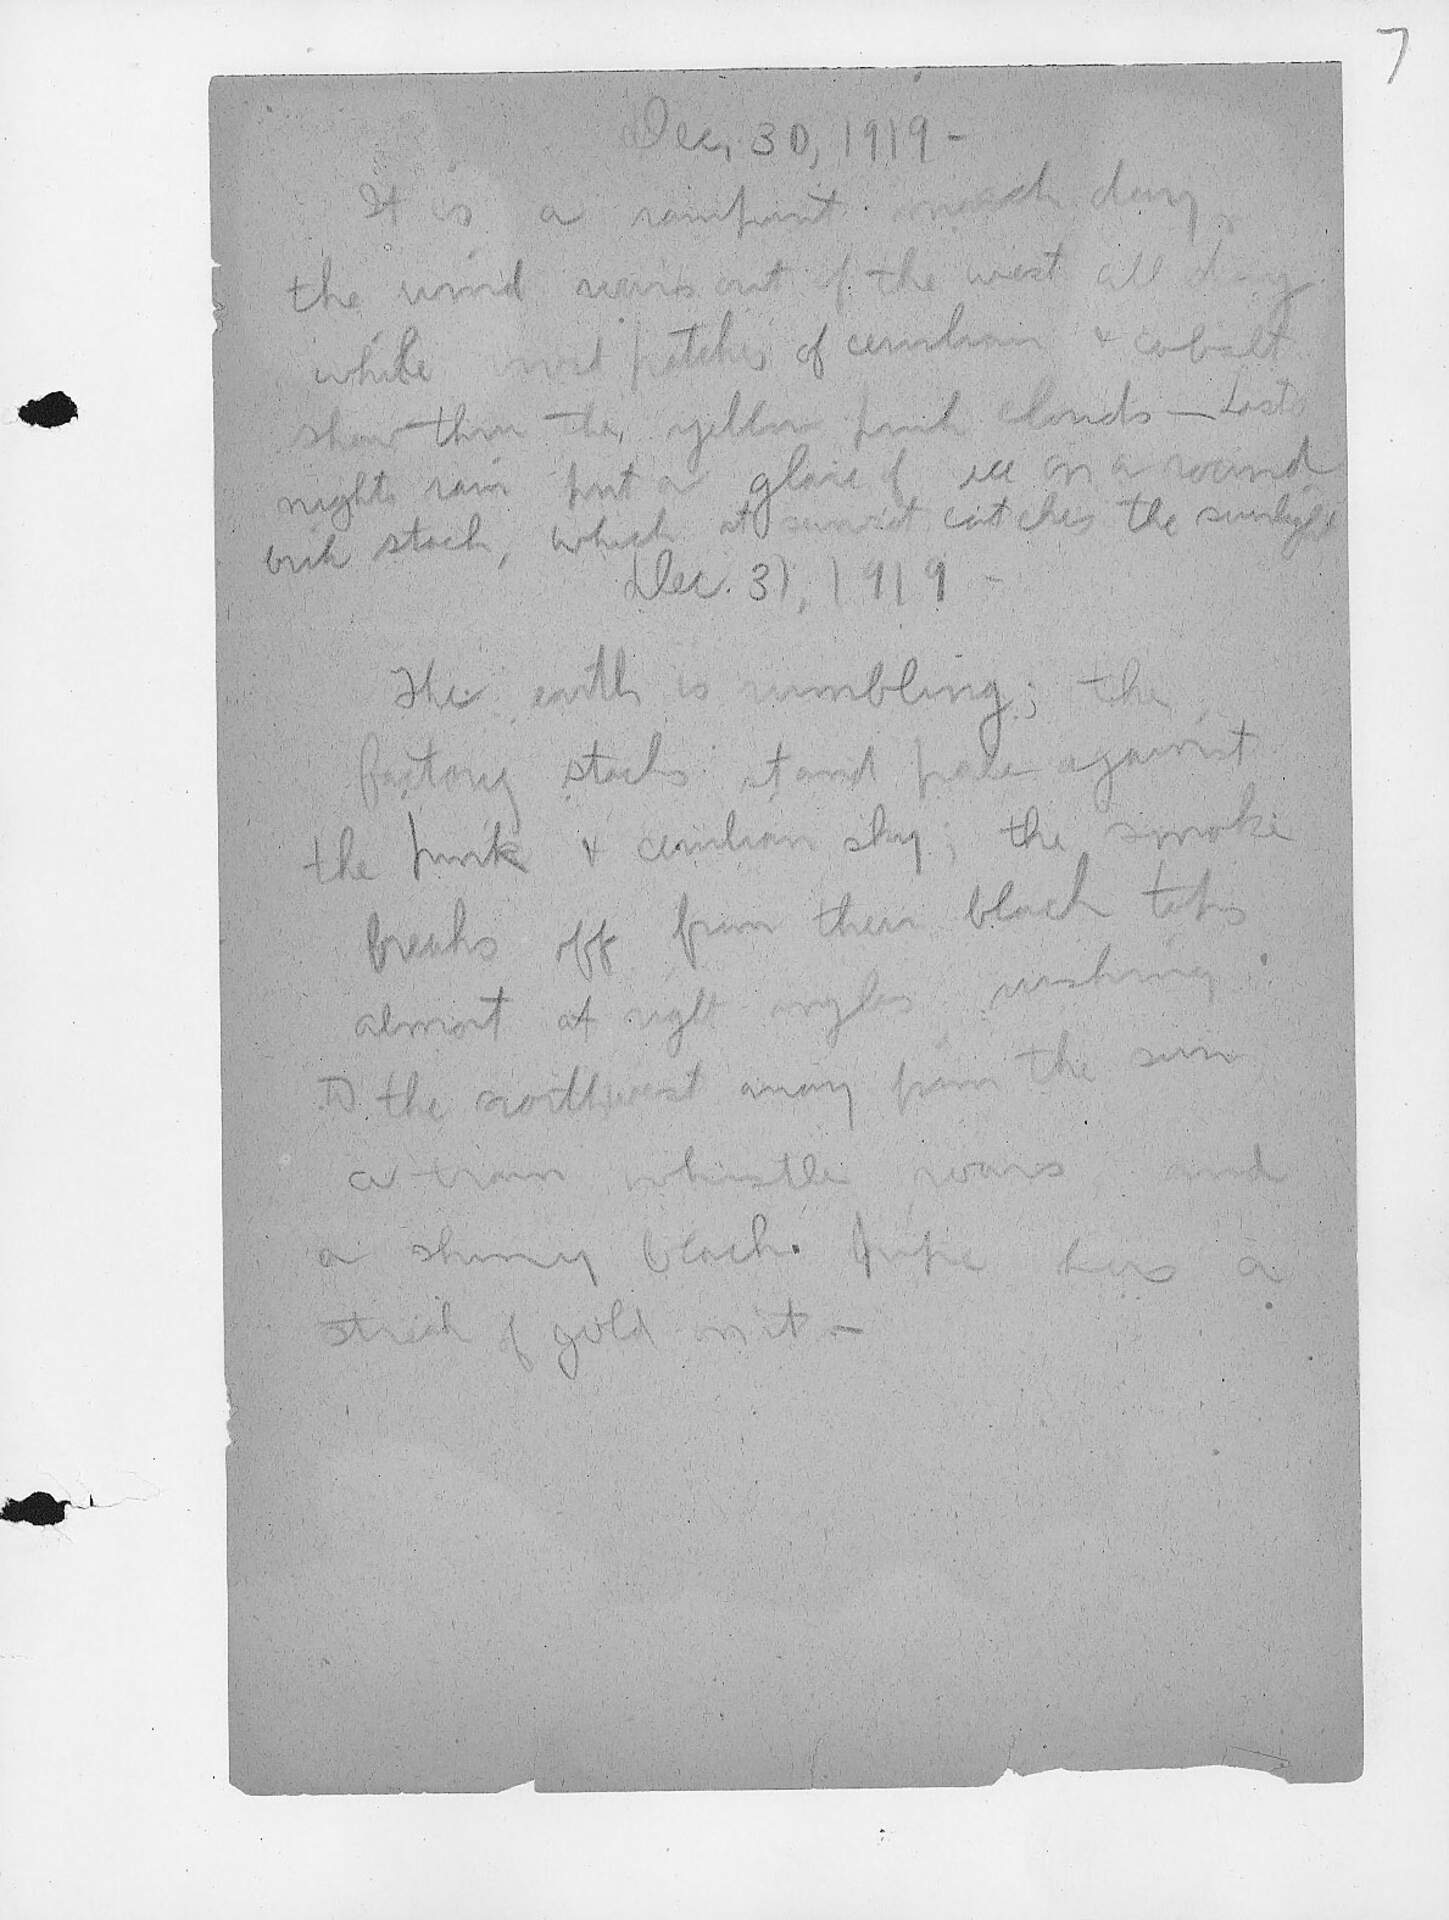 7
Dec. 30, 1919 –
It is a rampant march day,
the wind roars out of the west all day
while vivid patches of cerulean & cobalt
show thru the yellow pink clouds – Last
nights rain put a glaze of ice on a round
brick stack, which at sunset catches the sunlight
Dec. 31, 1919 –
The earth is rumbling; the
factory stacks stand pale against
the pink & cerulean sky; the smoke
breaks off from their black tops
almost at right angles rushing
to the northwest away from the sun
a train whistle roars and
a shiney black pipe has a
streak of gold on it –